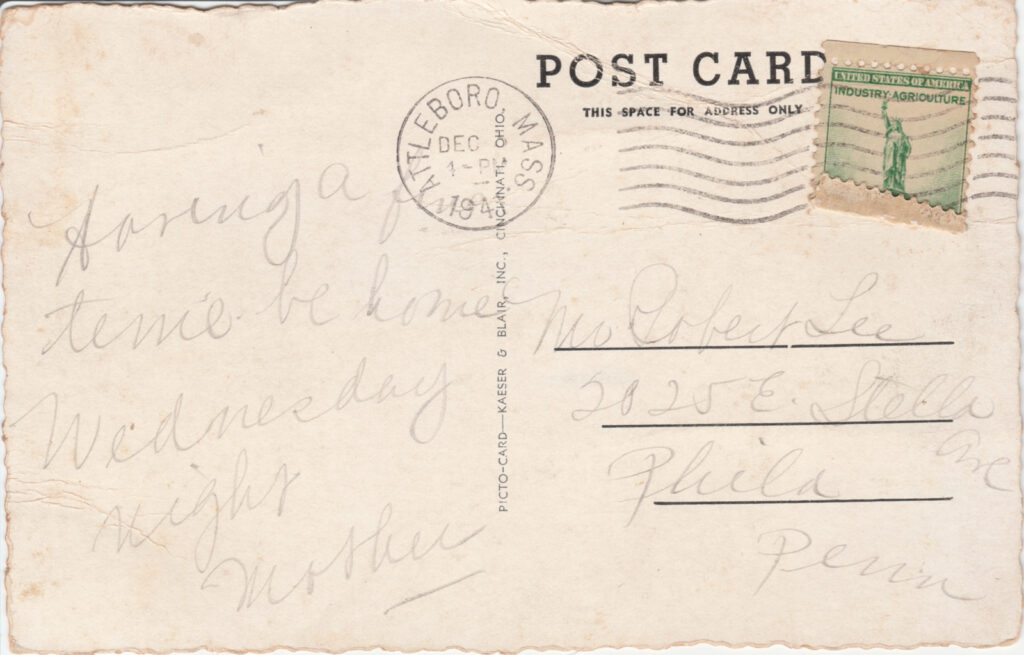 POST CARD
THIS SPACE FOR ADDRESS ONLY
UNITED STATES OF AMERICA
INDUSTRY AGRICULTURE
ATTLEBORO, MASS
DEC
1-PM
194
PICTO-CARD—KAESER & BLAIR, INC., CINCINNATI, OHIO.
Having a fine
teme be home
Wednesday
night
Mother
Mr Robert Lee
2025 E. Stella
Ave
Phila
Penn